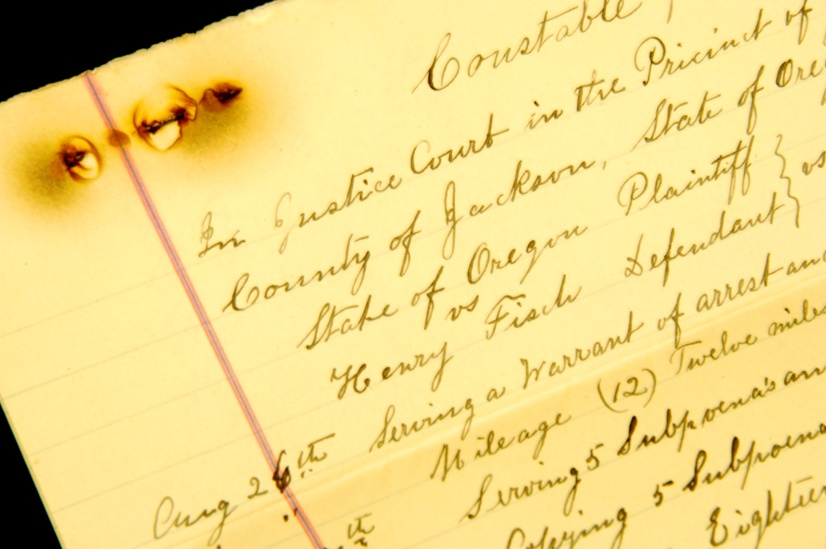 Constable
In Justice Court in the Pricinct of
County of Jackson, State of Ore
State of Oregon Plaintiff } vs
vs
Henry Fisch Defendant
Aug 26th Serving a Warrant of arrest and
Mileage (12) Twelve miles
Serving 5 Subpoena's an
th Copying 5 Subpoena
Eightee